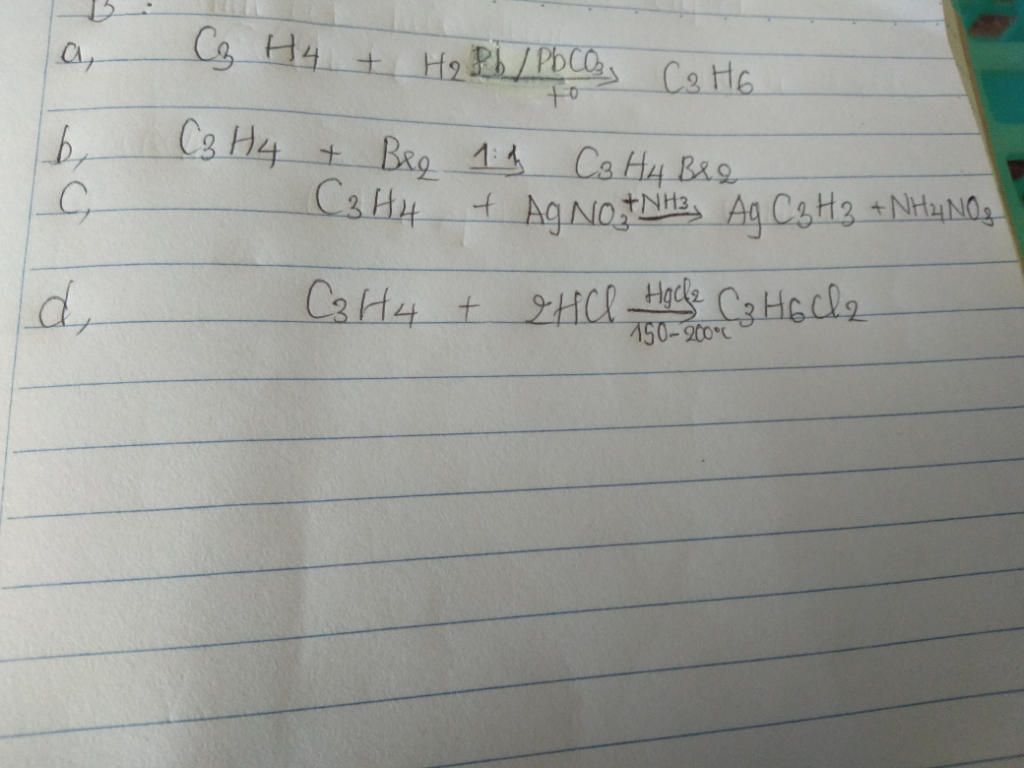 B:
a, C3 H4 + H2 Pb/PbCO3 t0 C3H6
b, C3H4 + Br2 1:1 C3H4Br2
C, C3H4 + AgNO3 +NH3 AgC3H3 + NH4NO3
d, C3H4 + 2HCl HgCl2 150-200°C C3H6Cl2